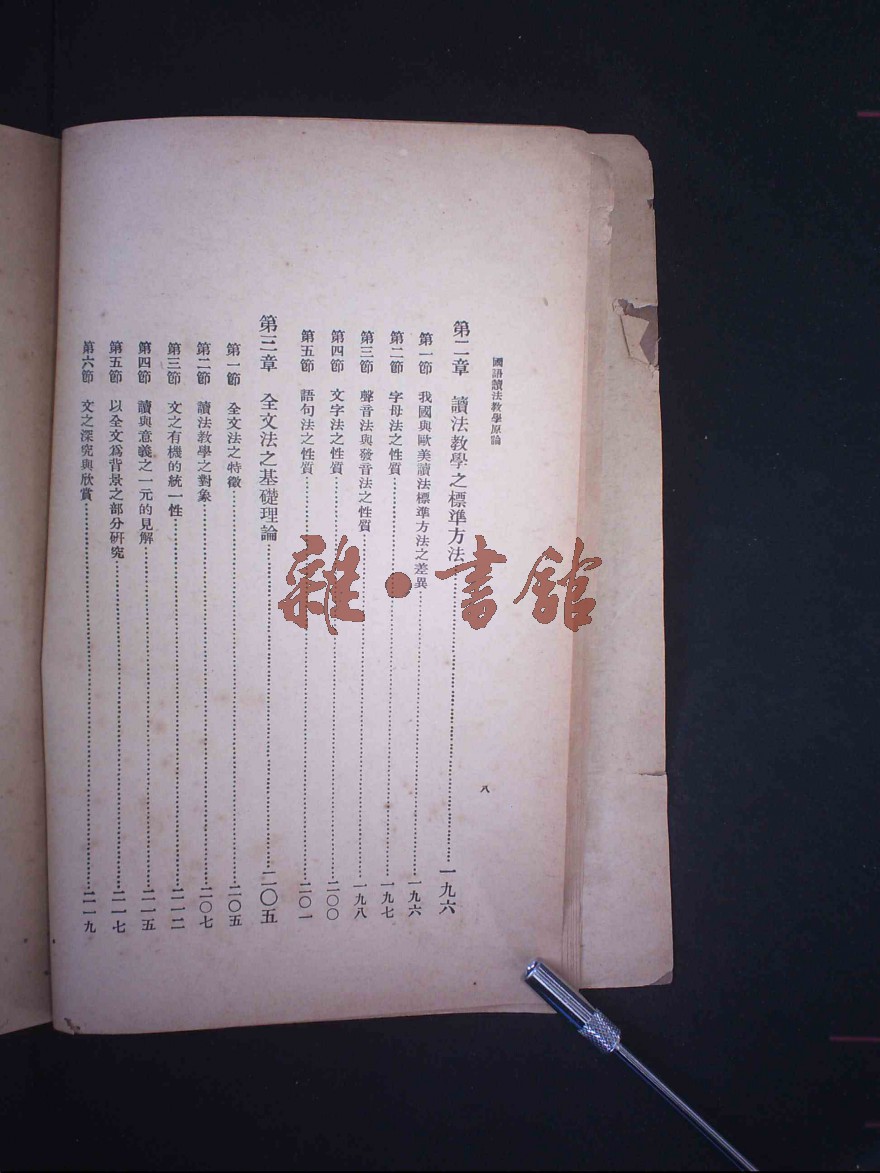 國語讀法教學原論
八
第二章 讀法教學之標準方法……一九六
第一節 我國與歐美讀法標準方法之差異……一九六
第二節 字母法之性質……一九七
第三節 聲音法與發音法之性質……一九八
第四節 文字法之性質……二〇〇
第五節 語句法之性質……二〇一
第三章 全文法之基礎理論……二〇五
第一節 全文法之特徵……二〇五
第二節 讀法教學之對象……二〇七
第三節 文之有機的統一性……二一二
第四節 讀與意義之一元的見解……二一五
第五節 以全文爲背景之部分研究……二一七
第六節 文之深究與欣賞……二一九
雜·書館